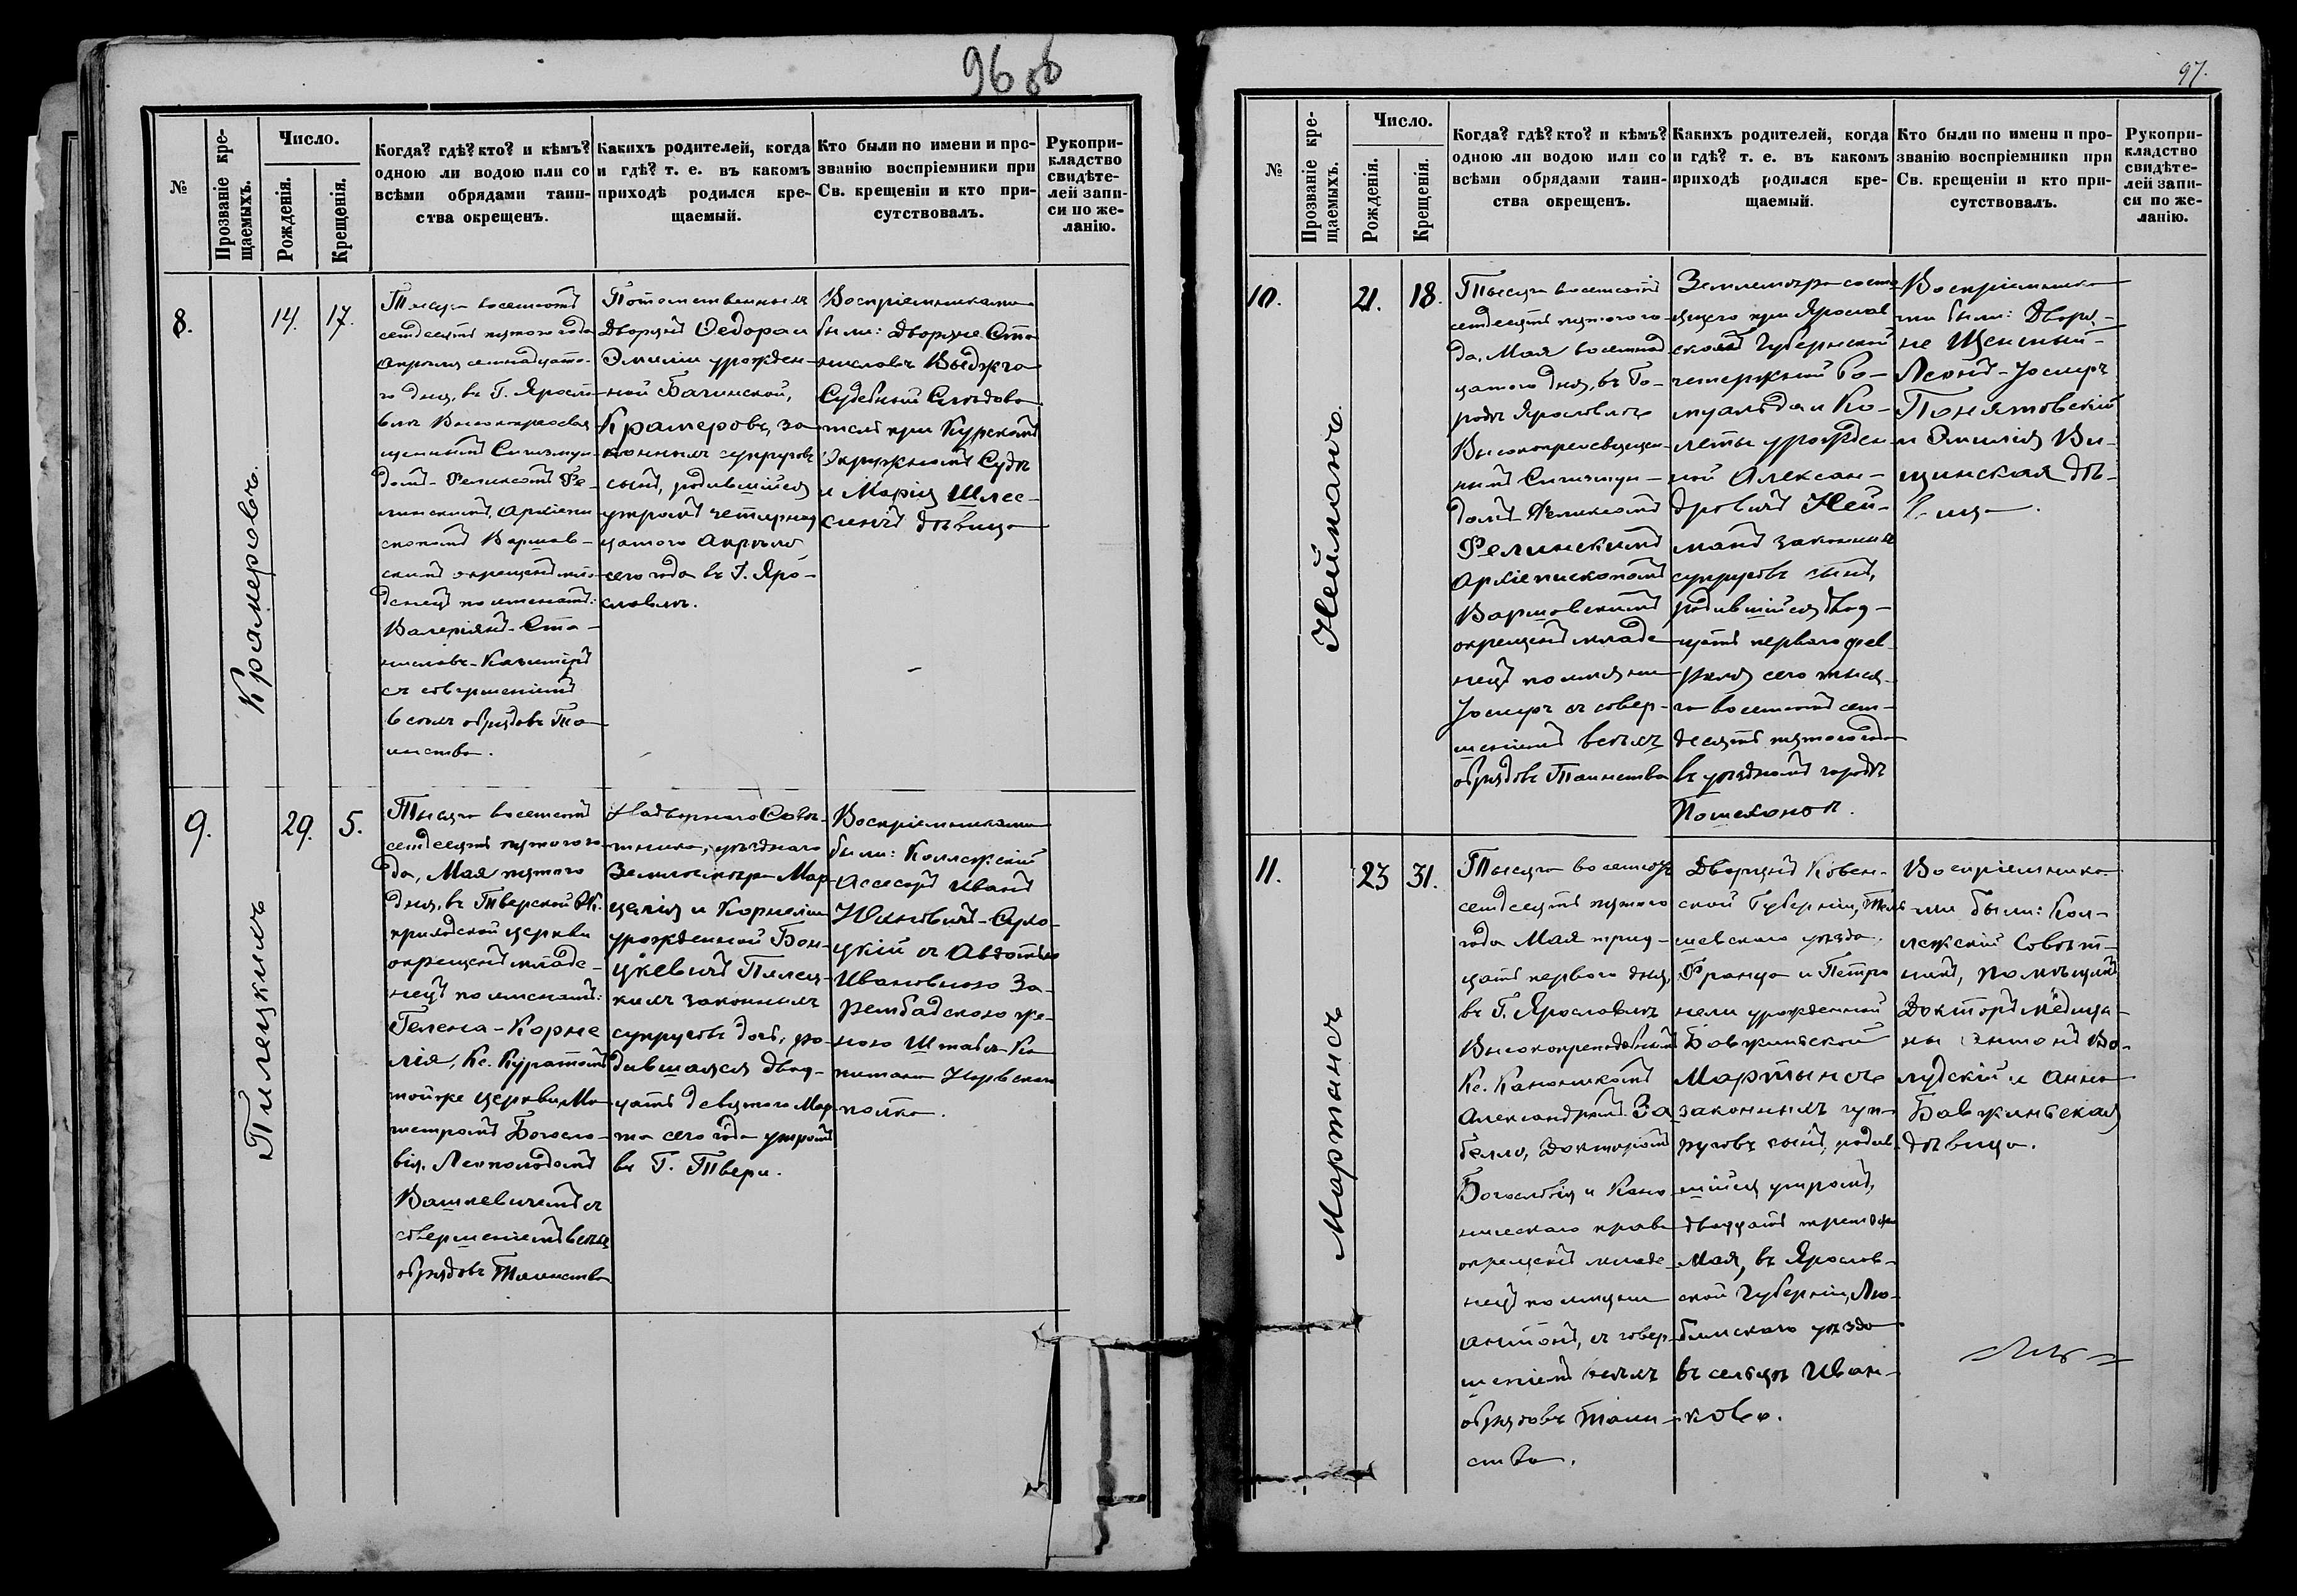 96 об
№
Прозваніе кре-
щаемыхъ.
Число.
Рожденія.
Крещенія.
Когда? гдѣ? кто? и кѣмъ?
одною ли водою или со
всѣми обрядами таин-
ства окрещенъ.
Какихъ родителей, когда
и гдѣ? т. е. въ какомъ
приходѣ родился кре-
щаемый.
Кто были по имени и про-
званію воспріемники при
Св. крещеніи и кто при-
сутствовалъ.
Рукопри-
кладство
свидѣте-
лей запи-
си по же-
ланію.
8.
Крамеровъ.
14.
17.
Тысяча восемсотъ
семдесятъ пятаго года
Апрѣля семнадцата-
го дня, въ Г. Яросла
влѣ Высокопреосвя
щеннымъ Сигизмун
домъ-Феликсомъ Фе-
линскимъ, Архіепи
скопомъ Варшав-
скимъ окрещенъ мла
денецъ по именамъ:
Валеріянъ-Ста-
ниславъ-Казиміръ
съ совершеніемъ
всѣхъ обрядовъ Та
инства.
Потомственныхъ
Дворянъ Ѳедора и
Эмиліи урожден-
ной Бачинской,
Крамеровъ, за
конныхъ супруговъ
сынъ, родившійся
утромъ четырнад
цатаго Апрѣля
сего года въ Г. Яро-
славлѣ.
Воспріемниками
были: Дворяне Ста
ниславъ Выджга
Судебный Слѣдова
тель при Курскомъ
Окружномъ Судѣ
и Марія Шлес-
сингъ дѣвица
9.
Пилецкихъ
29.
5.
Тысяча восемсотъ
семдесятъ пятаго го
да, Мая пятаго
дня, въ Тверской Р.К.
приходской церкви
окрещенъ младе-
нецъ по именамъ:
Гелена-Корне
лія, Кс. Куратомъ
тойже церкви Ма
гистромъ Богосло-
вія, Леопольдомъ
Вашкевичемъ съ
совершеніемъ всѣхъ
обрядовъ Таинства
Надворнаго Совѣ-
тника, уѣзднаго
Землемѣра Мар-
целія и Корнеліи
урожденной Бон-
цкевичъ Пилец-
кихъ законныхъ
супруговъ дочь, ро-
дившаяся двад-
цать девятаго Мар-
та сего года утромъ
въ Г. Твери.
Воспріемниками
были: Коллежскій
Ассесоръ Иванъ
Ивановичъ-Сухо-
цкій съ Авдотьею
Ивановною За-
рембадскою же-
ною Штабсъ-Ка
питана
полка.
97.
№
Прозваніе кре-
щаемыхъ.
Число.
Рожденія.
Крещенія.
Когда? гдѣ? кто? и кѣмъ?
одною ли водою или со
всѣми обрядами таин-
ства окрещенъ.
Какихъ родителей, когда
и гдѣ? т. е. въ какомъ
приходѣ родился кре-
щаемый.
Кто были по имени и про-
званію воспріемники при
Св. крещеніи и кто при-
сутствовалъ.
Рукопри-
кладство
свидѣте-
лей запи-
си по же-
ланію.
10.
Нейманъ.
21.
18.
Тысяча восемсотъ
семдесятъ пятаго го-
да, Мая восемнад
цатаго дня, въ Го-
родѣ Ярославлѣ
Высокопреосвящен
нымъ Сигизмун-
домъ Феликсомъ
Фелинскимъ
Архіепископомъ
Варшавскимъ
окрещенъ младе
нецъ по имени
Іосифъ съ совер-
шеніемъ всѣхъ
обрядовъ Таинства
Землемѣра состо
ящаго при Ярослав
ской Губернской
чертежной Ро-
муальда и Ко-
леты урожден
ной Алексан-
дровичъ Ней-
манъ законныхъ
супруговъ сынъ,
родившійся двад-
цать перваго фев
раля сего тыся-
ча восемсотъ сем-
десятъ пятаго года
въ уѣздномъ городѣ
Пошехоноѣ.
Воспріемника
ми были: Дворя-
не Щенсный-
Леонъ-Іосифъ
Понятовскій
и Эмилія Ви-
щинская дѣ-
вица.
11.
Мартынсъ
23
31.
Тысяча восемсотъ
семдесятъ пятаго
года Мая трид-
цать перваго дня,
въ Г. Ярославлѣ
Высокопреподобнымъ
Кс. Каноникомъ
Александромъ За
белло, Докторомъ
Богословія и Кано
ническаго права
окрещенъ младе-
нецъ по имени
Антонъ, съ совер-
шеніемъ всѣхъ
обрядовъ Таин-
ства.
Дворянъ Ковен-
ской Губерніи, Тель
шевскаго уѣзда,
Франца и Петро
нели урожденной
Бавжинской
Мартынсъ
законныхъ суп-
руговъ сынъ, родив-
шійся утромъ,
двадцать третьяго
Мая, въ Ярослав-
ской Губерніи, Лю-
бимскаго уѣзда
въ сельцѣ Иван-
ково.
Воспріемника-
ми были: Кол-
лежскій Совѣт-
никъ,
Докторъ медици-
ны Антонъ Во-
лудскій и Анна
Бавжинская
дѣвица.